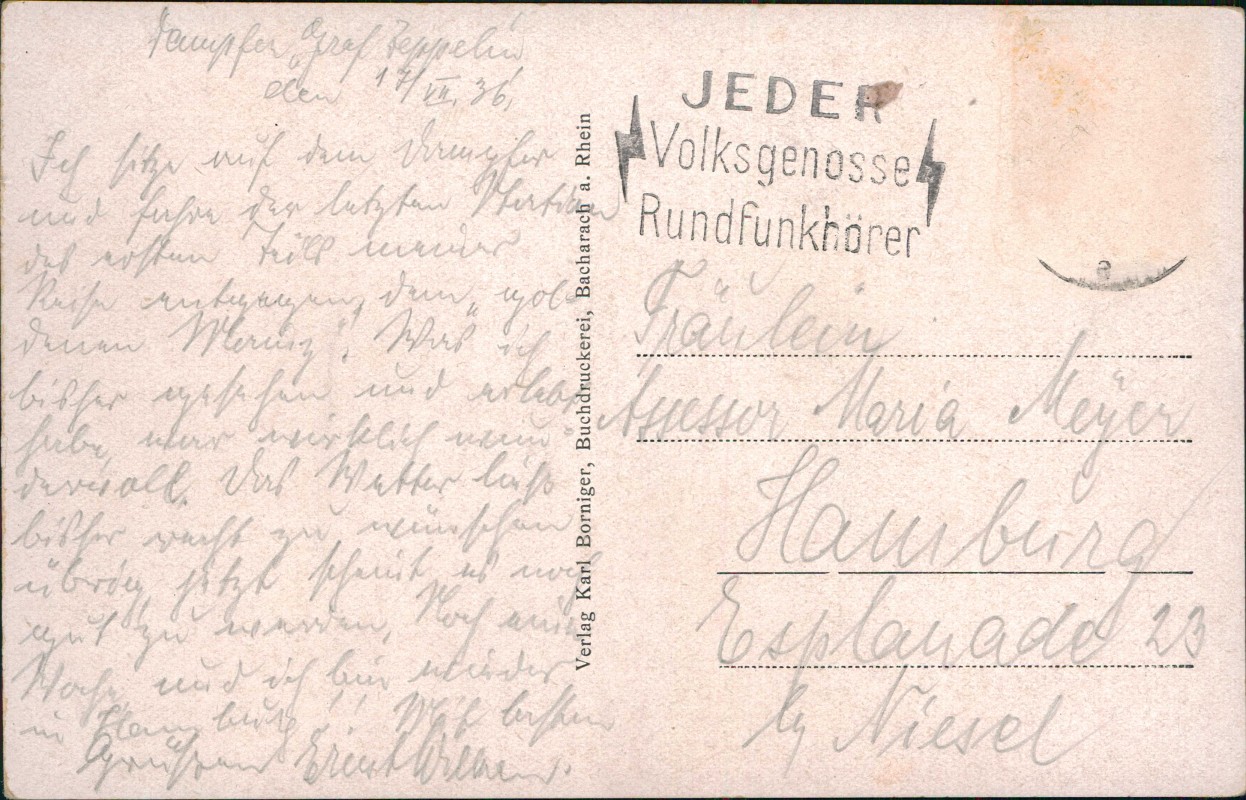 Dampfer „Graf Zeppelin"
den 17/VII. 36.
Ich sitze auf dem Dampfer
und fahre der letzten Station
des ersten Teils meiner
Reise entgegen, dem „gol-
denen Mainz". Was ich
bisher gesehen und erlebt
habe, war wirklich wun-
dervoll. Das Wetter ließ
bisher recht zu wünschen
übrig, jetzt scheint es noch
gut zu werden. Noch eine
Woche und ich bin wieder
in Hamburg!! Mit besten
Grüßen Ernst
Verlag Karl Borniger, Buchdruckerei, Bacharach a. Rhein
JEDER
Volksgenosse
Rundfunkhörer
Fräulein
Assessor Maria Meyer
Hamburg
Esplanade 23
by Niesel